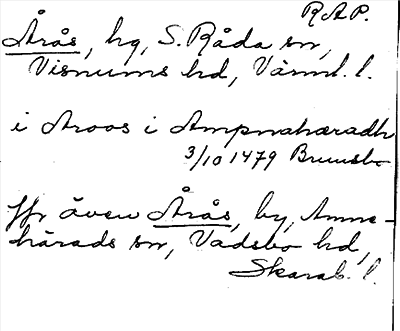 R.A.P.
Årås, hg, S. Råda sn,
Visnums hd, Värml. l.
i Aroos i Ampnaharadh
3/10 1479 Brunsbo
Jfr även Årås, by, Amne-
härads sn, Vadsbo hd,
Skarab. l.